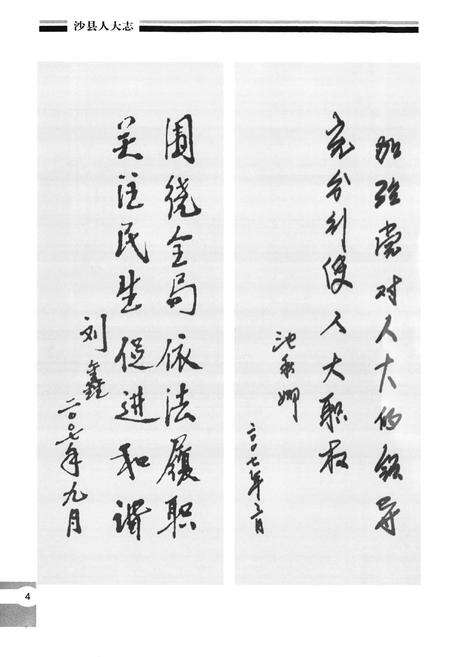 沙县人大志
加强党对人大的领导
充分行使人大职权
池秋娜
二〇〇七年月
围绕全局依法履职
关注民生促进和谐
刘鑫
二〇〇七年九月
4